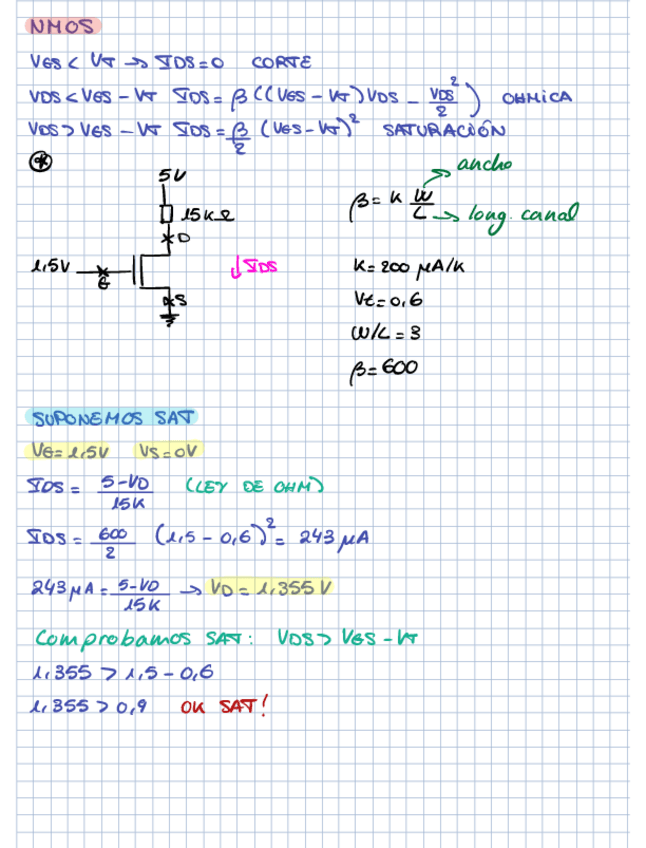 NMOS
VGS < VT → IDS = 0 CORTE
VDS < VGS - VT IDS = β ((VGS - VT) VDS - VDS²/2) OHMICA
VDS > VGS - VT IDS = β/2 (VGS - VT)² SATURACIÓN
*
5V
15KΩ
D
1,5V
G
↓ IDS
S
β = K W/L
→ ancho
→ long. canal
K = 200 μA/K
Vt = 0,6
W/L = 3
β = 600
SUPONEMOS SAT
VG = 1,5V VS = 0V
IDS = 5-VD/15K (LEY DE OHM)
IDS = 600/2 (1,5 - 0,6)² = 243 μA
243 μA = 5-VD/15K → VD = 1,355 V
Comprobamos SAT: VDS > VGS - VT
1,355 > 1,5 - 0,6
1,355 > 0,9 OK SAT!